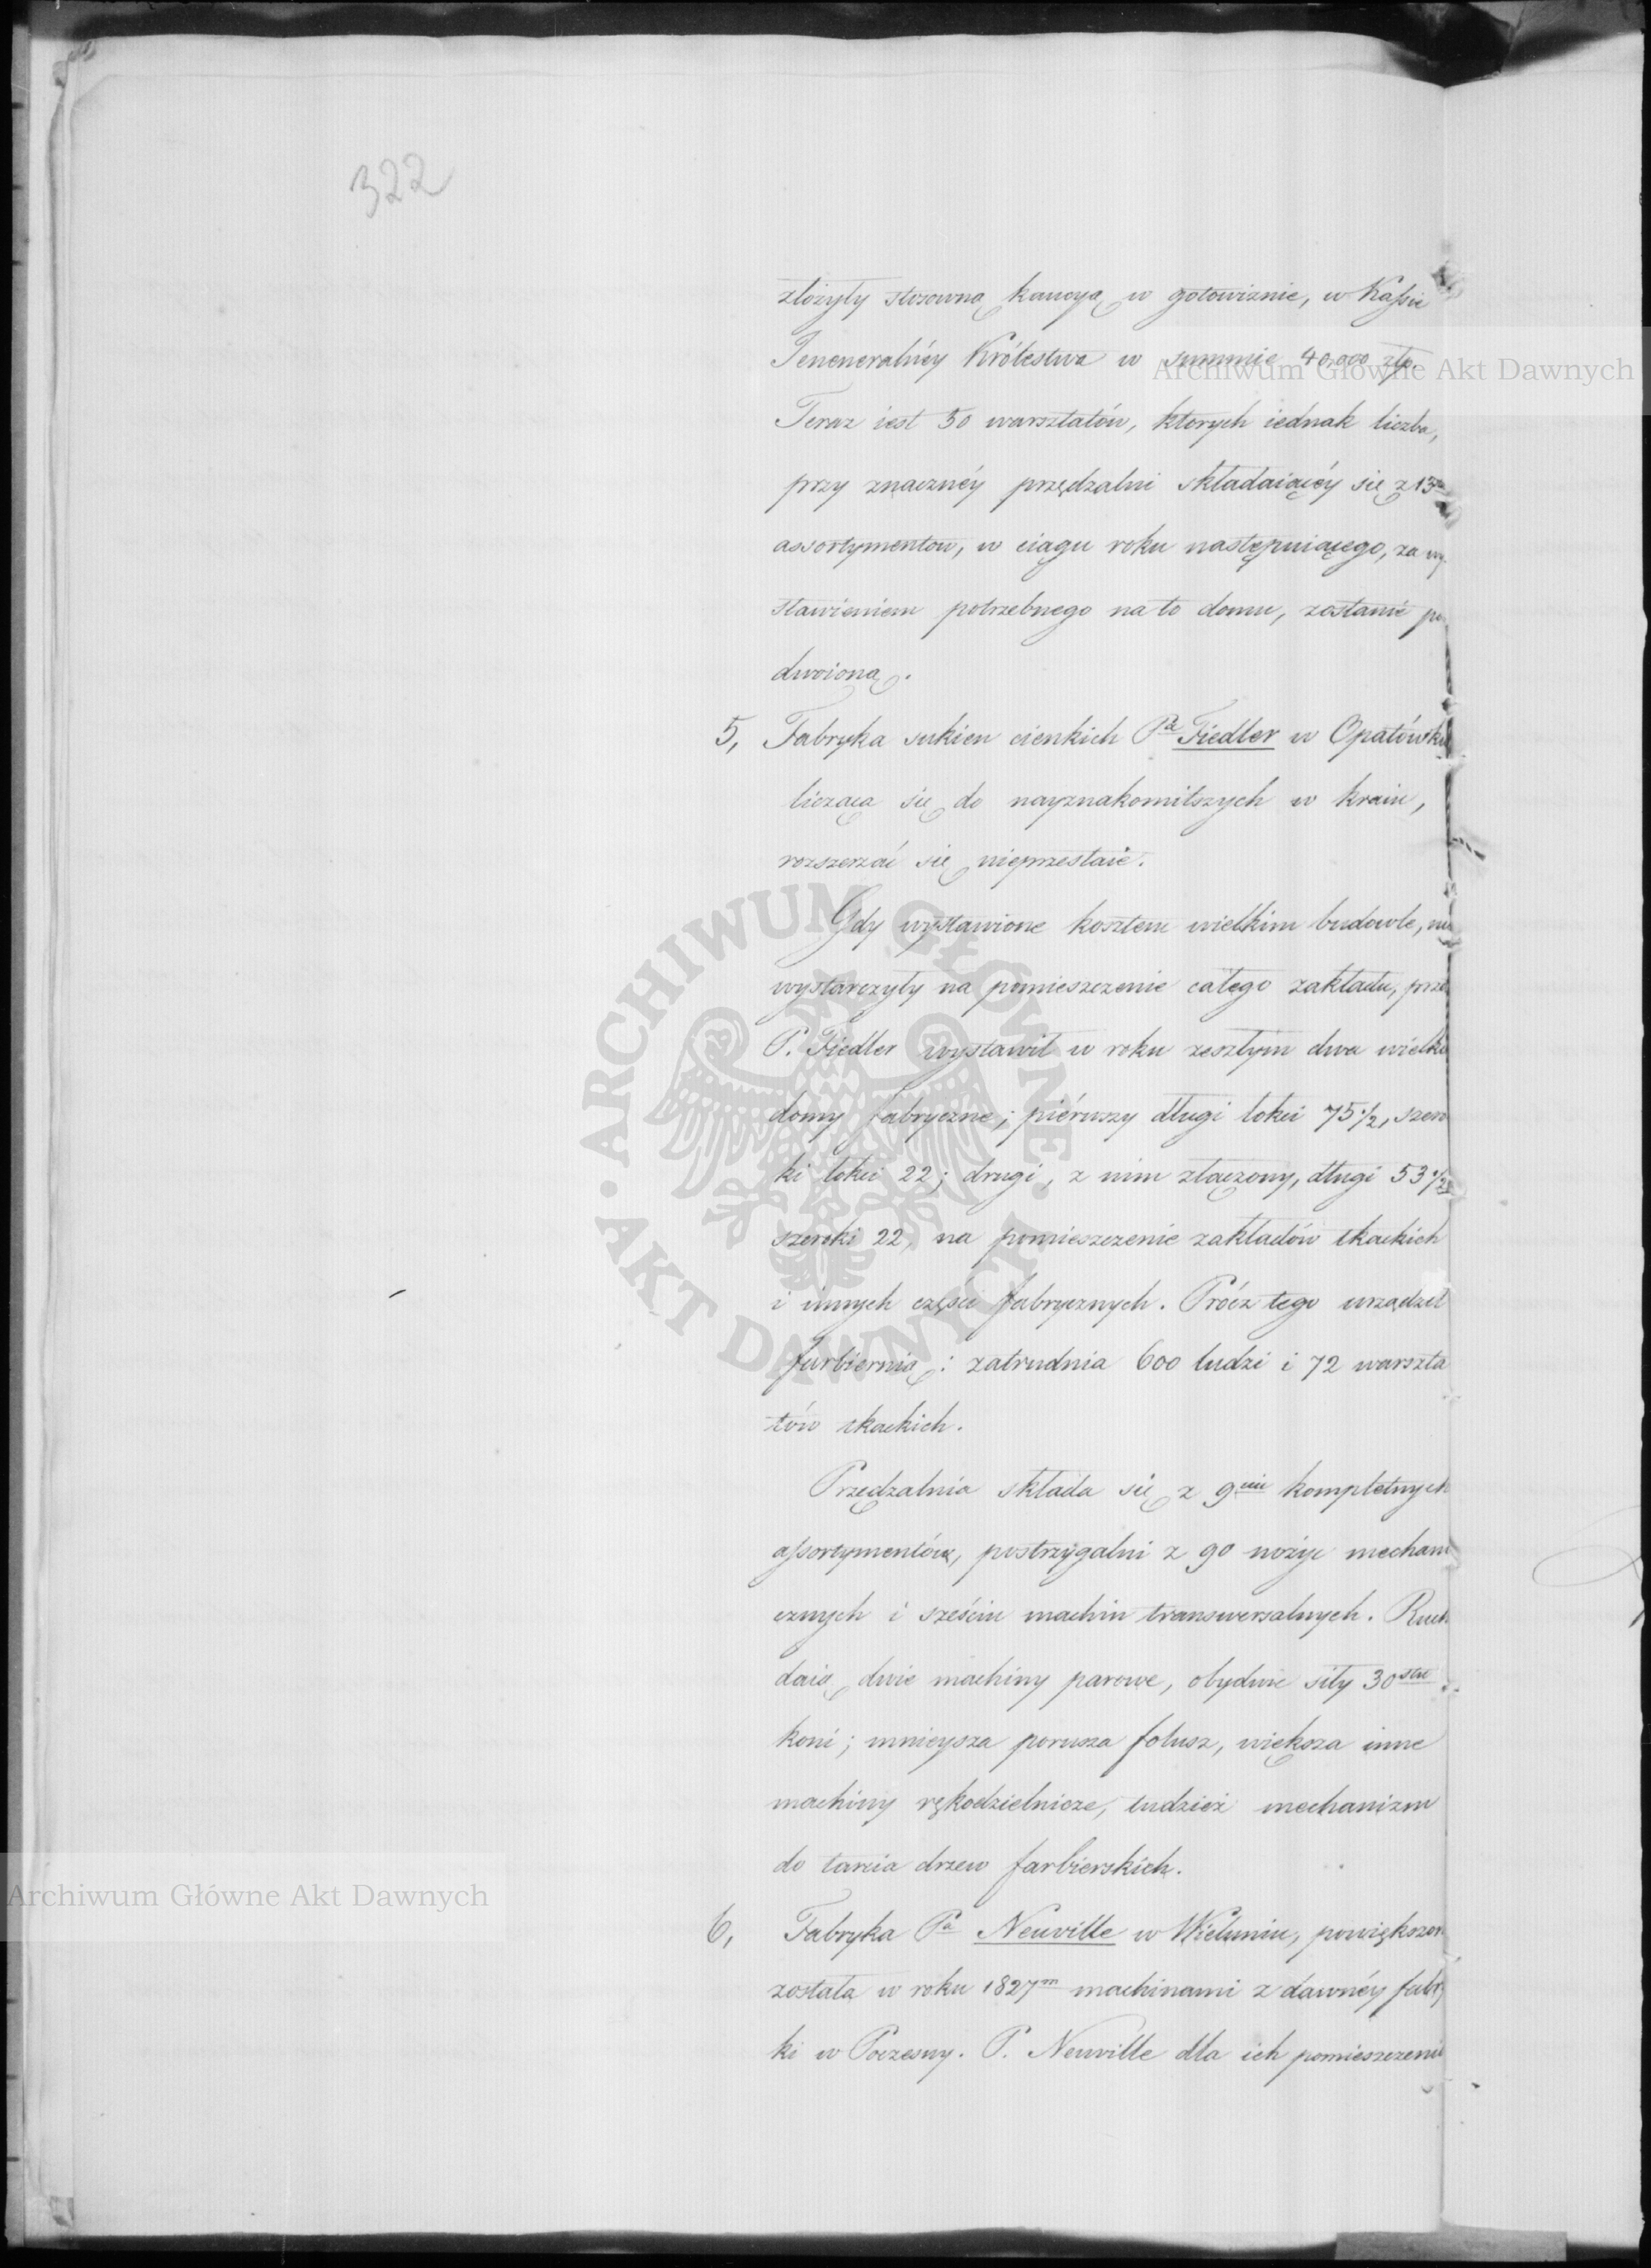 322
złożyły stosowną kaucyą w gotowiznie, w Kassie
Jeneneralnéy Królestwa w summie 40,000 złp.
Archiwum Główne Akt Dawnych
Teraz iest 50 warsztatów, ktorych iednak liczba,
przy znacznéy przędzalni składaiącéy się z 13tu
assortymentow, w ciągu roku następuiącego, za wy
stawieniem potrzebnego na to domu, zostanie po
dwoioną.
5, Fabryka sukien cienkich Pa Fiedler w Opatówku
licząca się do nayznakomitszych w kraiu,
rozszerzać się nieprzestaie.
Gdy wystawione kosztem wielkim budowle, nie
wystarczyły na pomieszczenie całego zakładu, prze
P. Fiedler wystawił w roku zeszłym dwa wielkie
domy fabryczne; piérwszy długi łokci 75 1/2, szero
ki łokci 22; drugi, z nim złączony, długi 53 1/2
szeroki 22, na pomieszczenie zakładów tkackich
i innych części fabrycznych. Prócz tego urządził
farbiernią; zatrudnia 600 ludzi i 72 warszta
tów tkackich.
Przędzalnia składa się z 9ciu kompletnych
assortymentów, postrzygalni z 90 nożyc mechani
cznych i sześciu machin transwersalnych. Ruch
daią dwie machiny parowe, obydwie siły 30stu
koni; mnieysza porusza folusz, większa inne
machiny rękodzielnicze, tudzież mechanizm
do tarcia drzew farbierskich.
Archiwum Główne Akt Dawnych
6, Fabryka Pa Neuville w Wieluniu, powiększon
została w roku 1827m machinami z dawnéy fabry
ki w Poczesny. P. Neuville dla ich pomieszczenia
ARCHIWUM GŁÓWNE • AKT DAWNYCH •